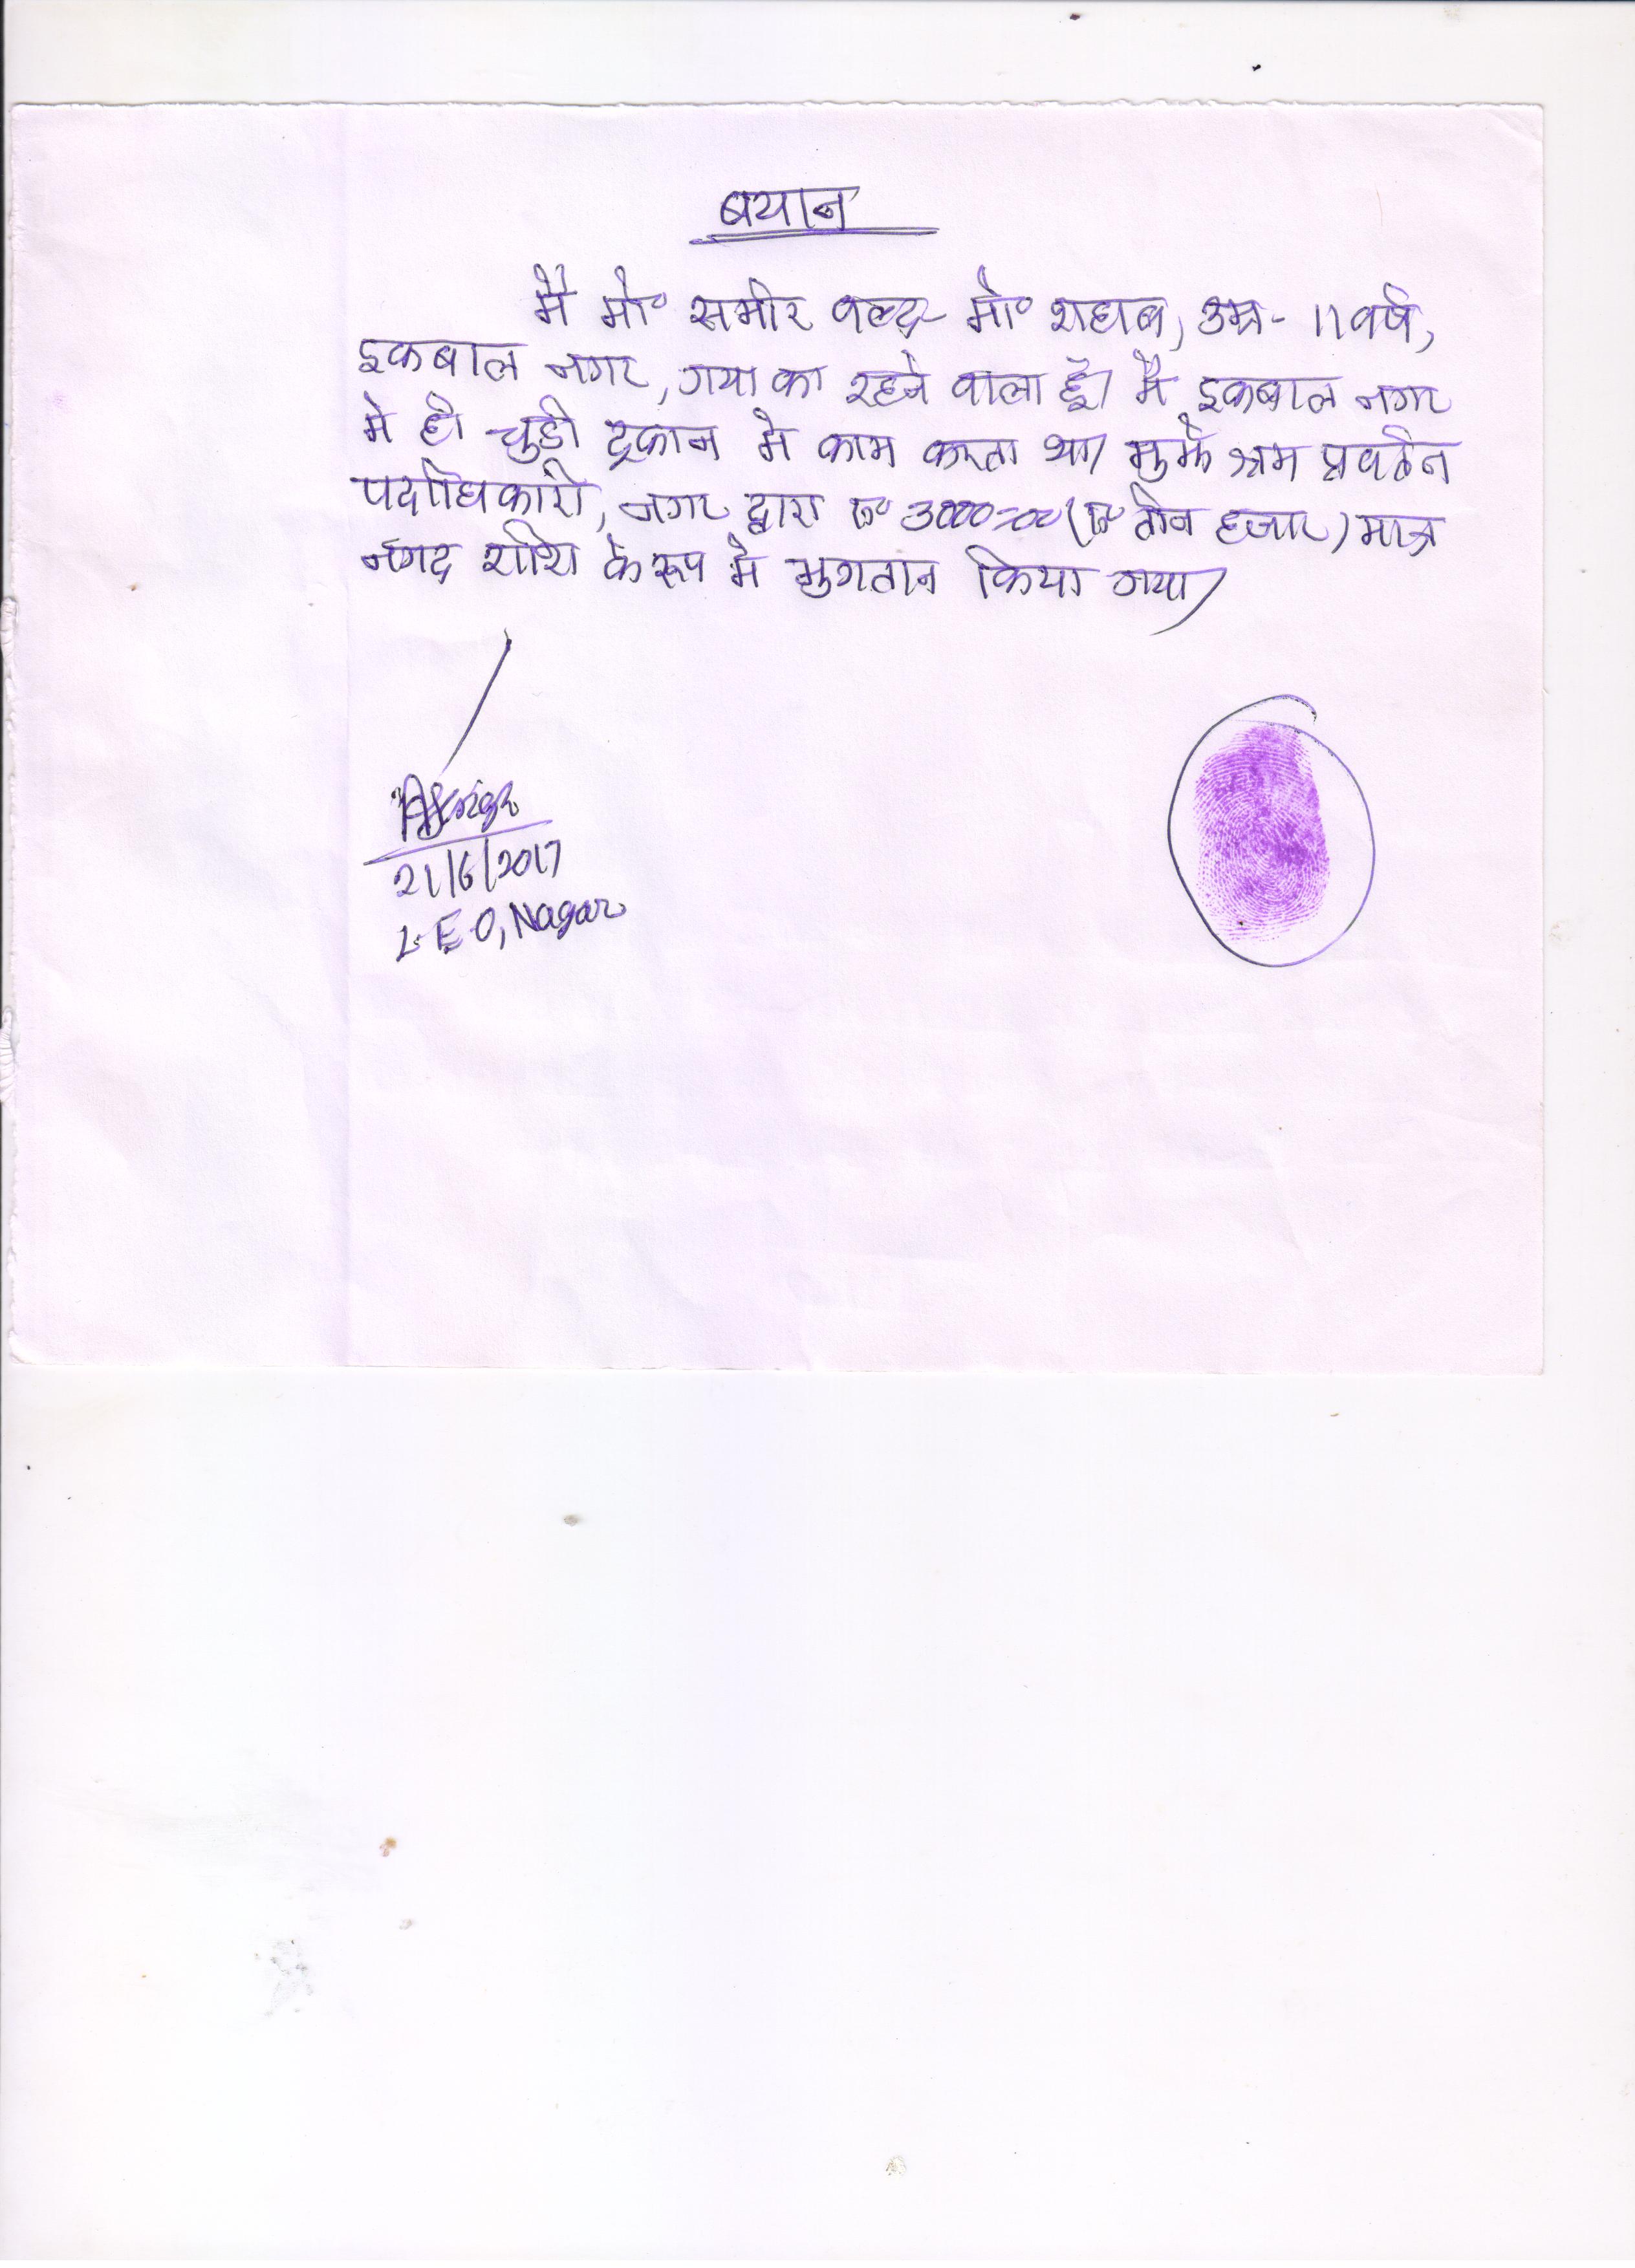 बयान
मै मो० समीर वल्द- मो० शहाब, उम्र- 11 वर्ष,
इकबाल नगर, गया का रहने वाला हूँ। मै इकबाल नगर
मे ही चुडी दूकान मे काम करता था। मुझे श्रम प्रवर्तन
पदाधिकारी, नगर द्वारा रू० 3000=00 (रू० तीन हजार) मात्र
नगद राशि के रूप मे भुगतान किया गया।
21/6/2017
L.E.O, Nagar